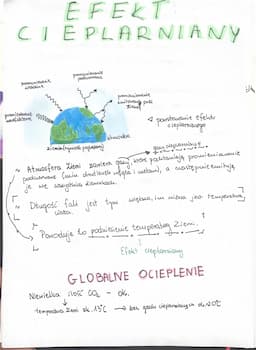 EFEKT
CIEPLARNIANY
promieniowanie
promieniowanie
atmosfera
powstawanie efektu
cieplarnianego
gazy cieplarniane
~ Atmosfera Ziemi zawiera gazy, które pochłaniają promieniowanie
podczerwone (min. dwutlenek węgla i metan), a następnie emitują
je we wszystkich kierunkach.
~ Długość fali jest tym większa, im niższa jest temperatura
~ Powoduje to podniesienie temperatury Ziemi.
Efekt cieplarniany
GLOBALNE OCIEPLENIE
Niewielka ilość CO2 - ok.
temperatura Ziemi ok. 15°C → bez gazów cieplarnianych ok. -20°C